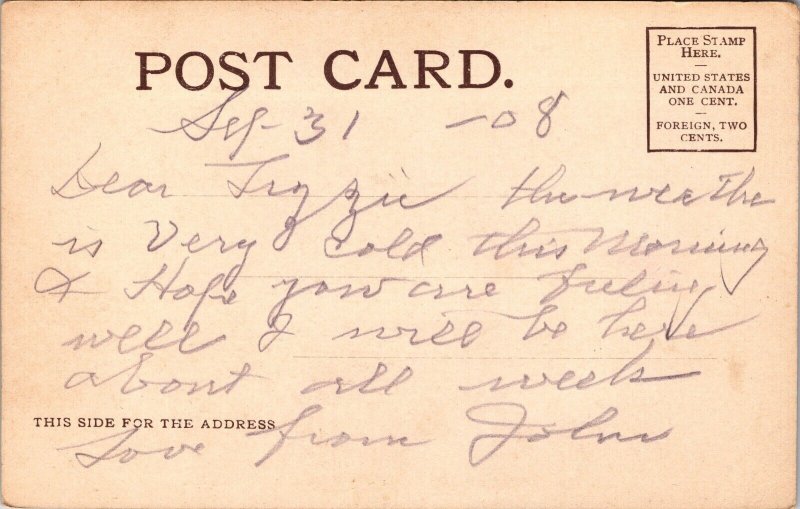 POST CARD.
PLACE STAMP
HERE.
UNITED STATES
AND CANADA
ONE CENT.
FOREIGN, TWO
CENTS.
Sep 31 - 08
Dear the weathe
is Very cold this Morning
& Hope you are feeling
well I will be here
about all week
THIS SIDE FOR THE ADDRESS
Love from John